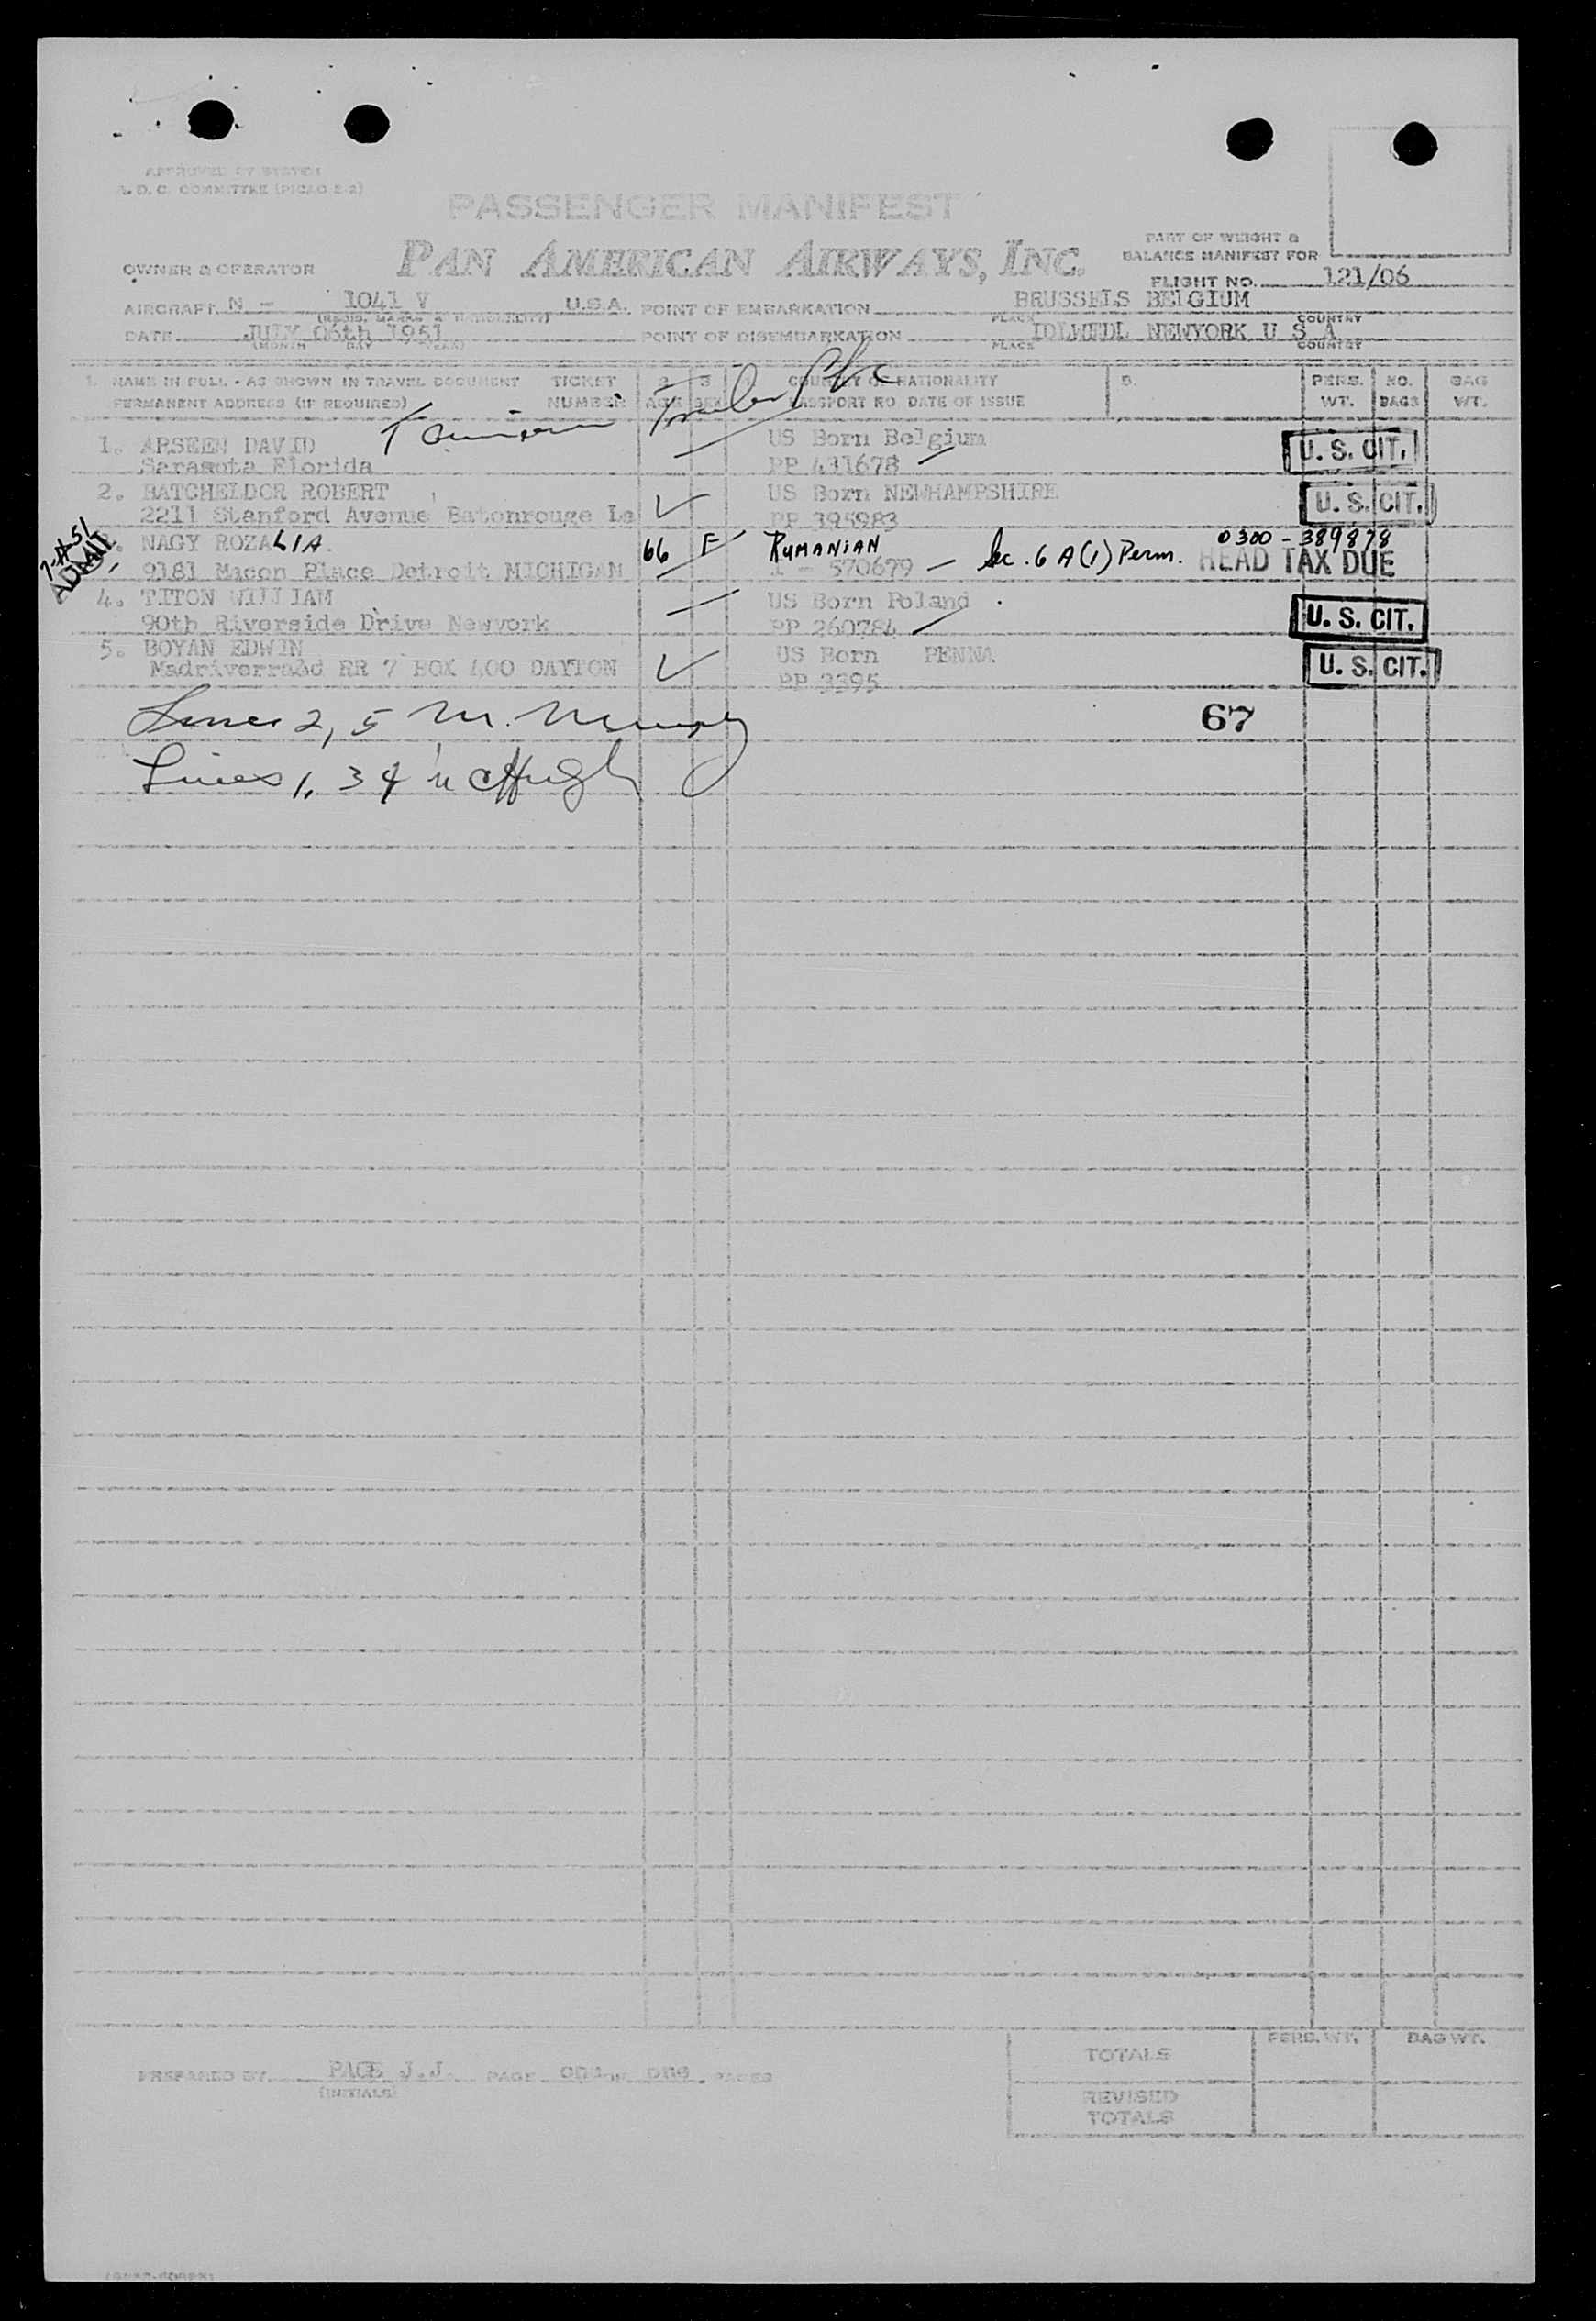 APPROVED BY SYSTEM
A. D. C. COMMITTEE (PICAO 2-2)
PASSENGER MANIFEST
PAN AMERICAN AIRWAYS, INC.
PART OF WEIGHT &
BALANCE MANIFEST FOR
OWNER & OPERATOR
FLIGHT NO. 121/06
AIRCRAFT N - 1041 V U.S.A. POINT OF EMBARKATION BRUSSELS BELGIUM
PLACE COUNTRY
DATE JULY 06th 1951 POINT OF DISEMBARKATION IDLWEDL NEWYORK U S A
(MONTH DAY YEAR) PLACE COUNTRY
1. NAME IN FULL - AS SHOWN IN TRAVEL DOCUMENT TICKET 2 3 COUNTRY OF NATIONALITY 5. PERS. NO. BAG
PERMANENT ADDRESS (IF REQUIRED) NUMBER AGE SEX PASSPORT NO. DATE OF ISSUE WT. BAGS WT.
1. ARSEEN DAVID US Born Belgium U. S. CIT.
Sarasota Florida PP 431678
2. BATCHELDOR ROBERT US Born NEWHAMPSHIRE U. S. CIT.
2211 Stanford Avenue Batonrouge La PP 395983
ADMIT NAGY ROZALIA 66 F RUMANIAN Sec. 6 A(1) Perm. 0300 - 389878
9181 Macon Place Detroit MICHIGAN I - 570679 HEAD TAX DUE
4. TITON WILLIAM US Born Poland U. S. CIT.
90th Riverside Drive Newyork PP 260784
5. BOYAN EDWIN US Born PENNA U. S. CIT.
Madriverroad RR 7 BOX 400 DAYTON PP 3395
Lines 2, 5 M. Murphy 67
Lines 1, 3 4 McHugh
TOTALS PERS. WT. BAG WT.
PREPARED BY PAGE J.J. PAGE one OF one PAGES
(INITIALS)
REVISED
TOTALS